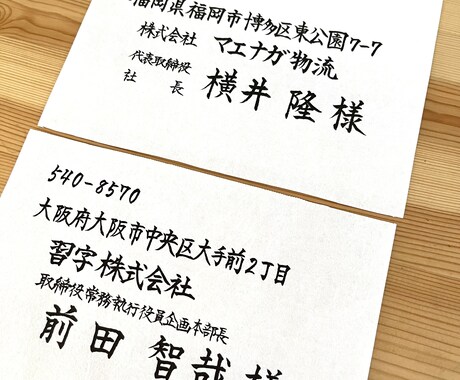 福岡県福岡市博多区東公園7-7
株式会社 マエナガ物流
代表取締役
社長 横井 隆 様
540-8570
大阪府大阪市中央区大手前2丁目
習字株式会社
取締役常務執行役員企画本部長
前田 智哉 様